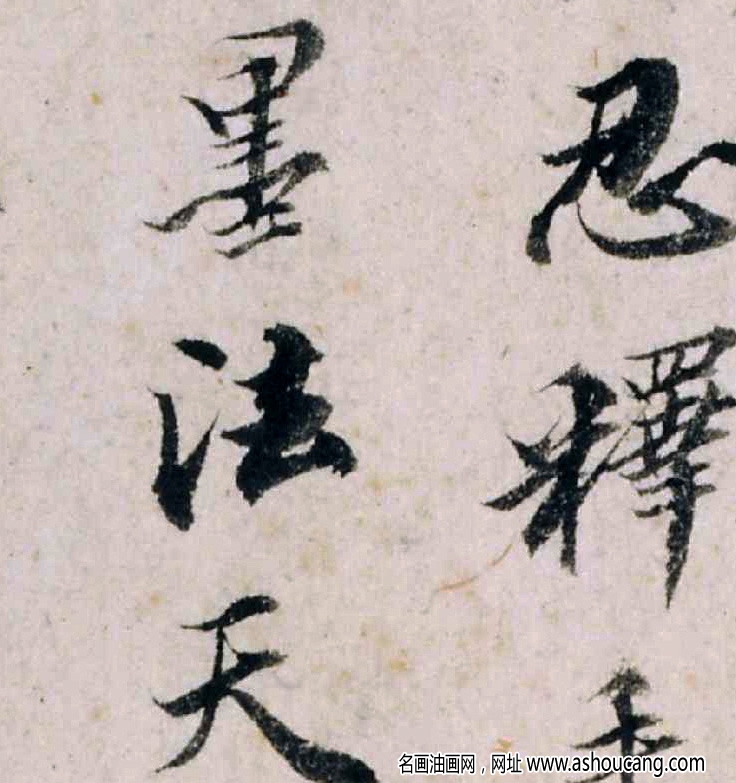 忍釋
墨法天
名画油画网，网址 www.ashoucang.com